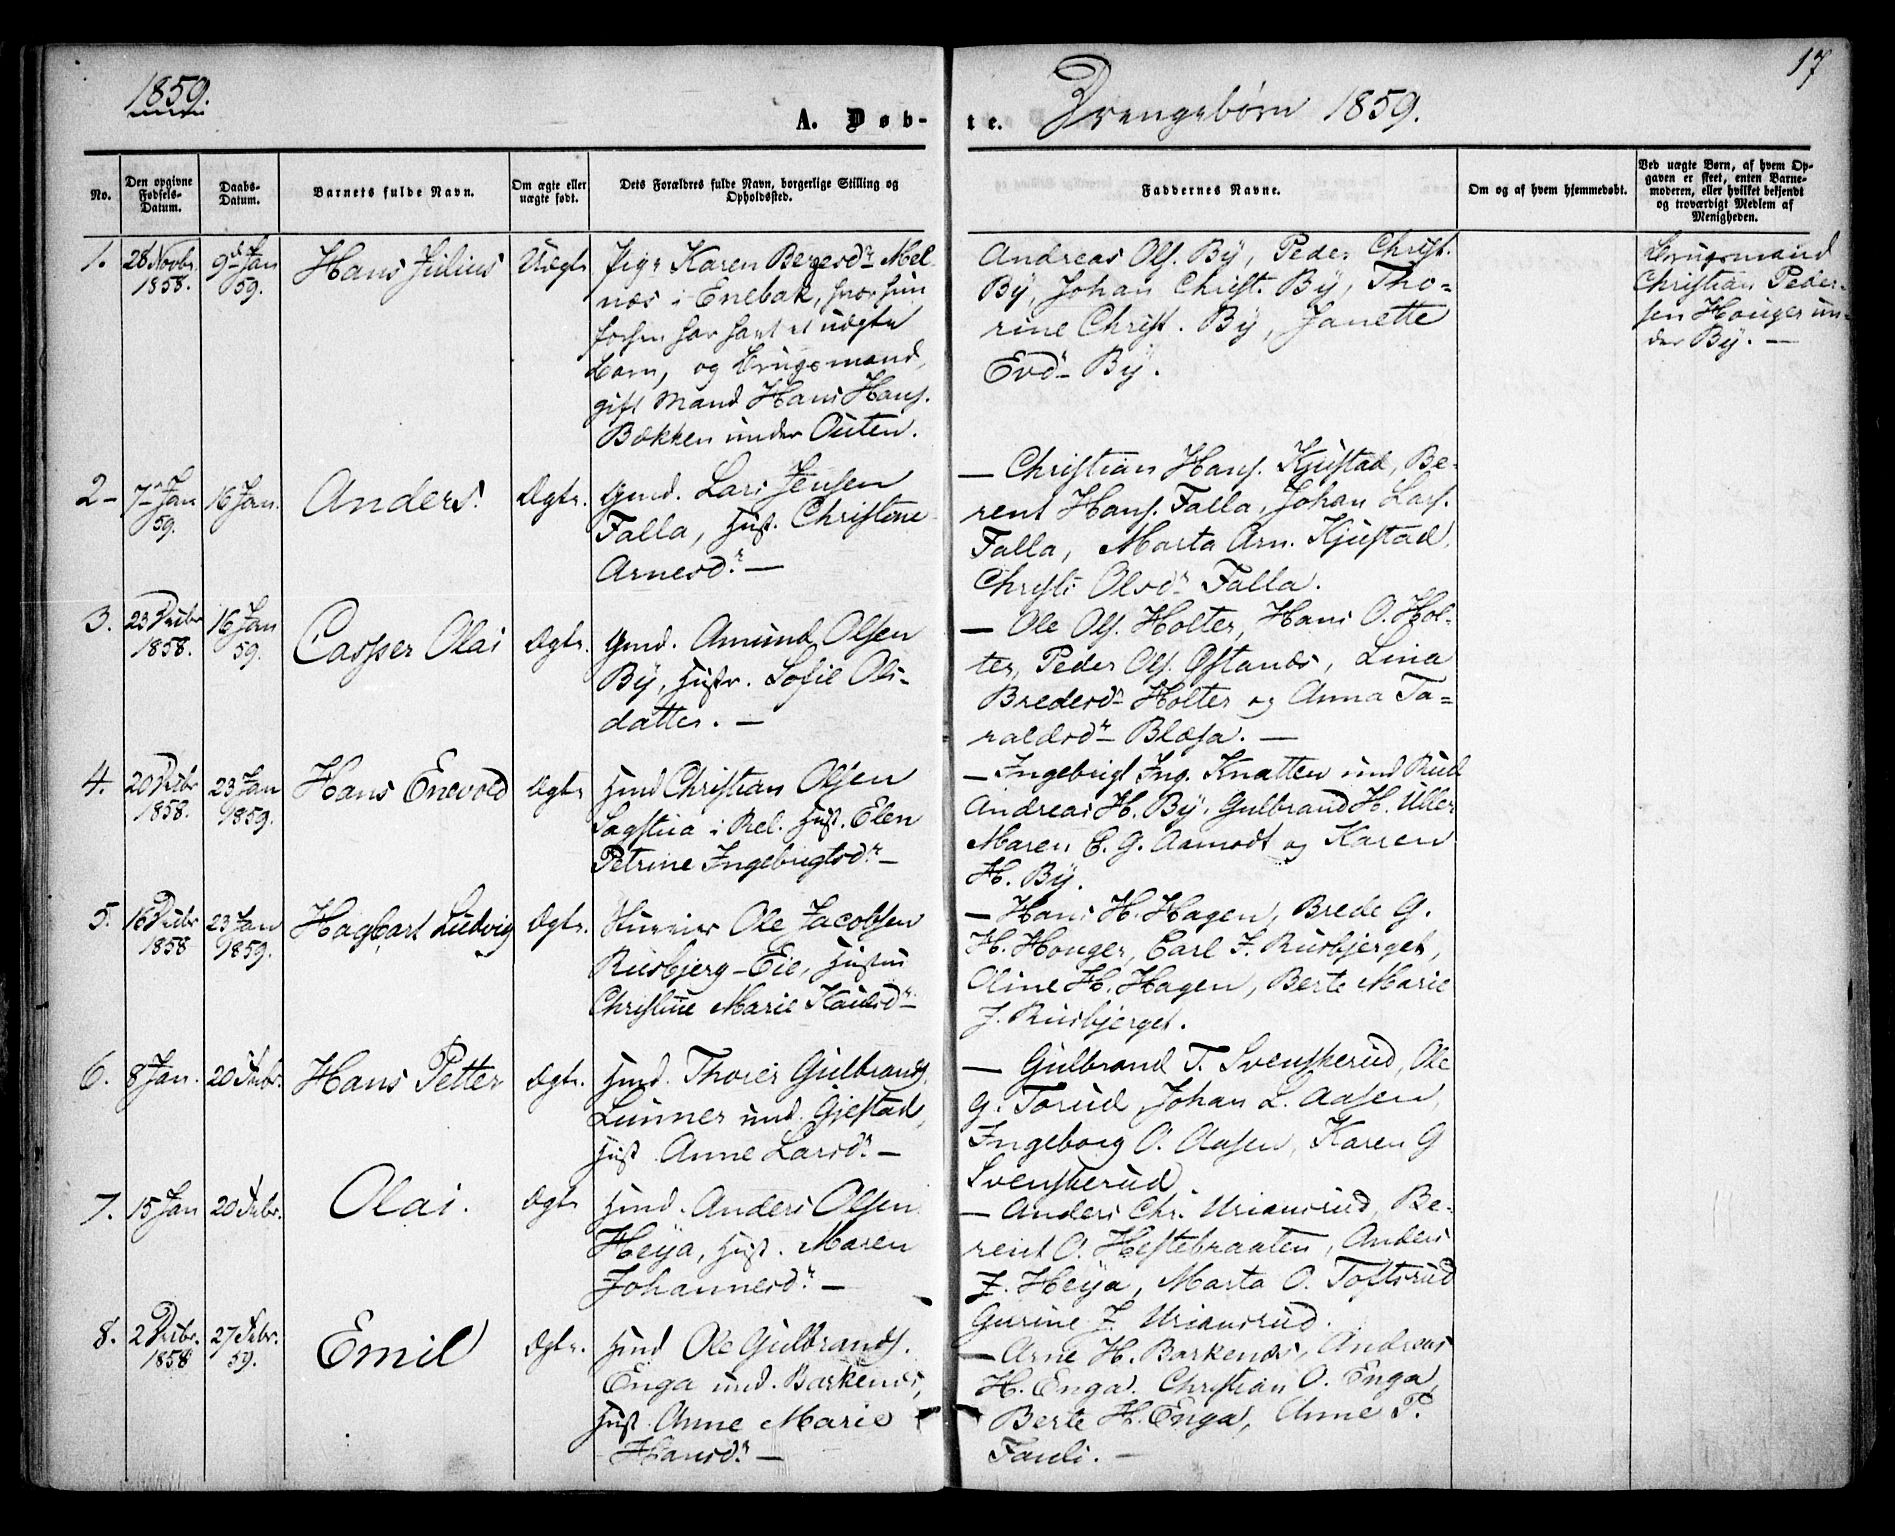 1859.
17
A. Døb-
te. Drengebørn 1859.
No.
Den opgivne Fødsels-Datum.
Daabs-Datum.
Barnets fulde Navn.
Om ægte eller uægte født.
Dets Forældres fulde Navn, borgerlige Stilling og Opholdssted.
Faddernes Navne.
Om og af hvem hjemmedøbt.
Ved uægte Børn, af hvem Opgaven er skeet, enten Barnemoderen, eller hvilket bekjendt og troværdigt Medlem af Menigheden.
1. 28 Novbr 1858. 9de Jan 59. Hans Julius Uægte
Pige Karen Bergersdr Mel-
næs i Enebak, hvor hun
forhen har havt et uægte
barn, og Brugsmand,
gift Mand Hans Hans.
Bækken under Outen.
Andreas Ols. By, Peder Christ.
By, Johan Christ. By, Tho-
rine Christ. By, Janette
Evd. By.
Brugsmand
Christian Peder-
sen Houger un-
der By. —
2- 7de Jan 59. 16 Jan. Anders. Ægte.
Gmd. Lars Jensen
Falla, Hust. Christine
Arnesdr. —
— Christian Hans. Kjustad, Be-
rent Hans. Falla, Johan Lars.
Falla, Marta Arn. Kjustad,
Christi Olsdr Falla.
3. 23 Decbr 1858. 16 Jan 59. Casper Olai Ægte.
Gmd. Amund Olsen
By, Hustr. Sofie Ols-
datter. —
— Ole Ols. Holter, Hans O. Hol-
ter, Peder Ols. Østands, Lina
Bredesdr Holter og Anna Ta-
raldsdr Blæsa. —
4. 20 Decbr 1858. 23 Jan 1859. Hans Enevold Ægte
Hmd Christian Olsen
Sagstua i Rel. Hust. Elen
Petrine Ingebrigtsdr. —
— Ingebrigt Ing. Knatten und Rud
Andreas H. By, Gulbrand H. Uller
Maren C. G. Aamodt og Karen
H. By.
5. 16 Decbr 1858 23 Jan 1859. Hagbart Ludvig Ægte.
Ole Jacobsen
Rusbjerg-Eie, Hustru
Christine Marie
— Hans H. Hagen, Brede G.
H. Houger, Carl J. Rusbjerget,
Oline H. Hagen, Berte Marie
J. Rusbjerget.
6. 8 Jan. 20 Febr. Hans Petter Ægte.
Hmd. Thorer Gulbrands.
Lunner und. Gjestad,
Hust. Anne Larsdr. —
— Gulbrand T. Svenskerud, Ole
G. Torud, Johan L. Aasen,
Ingeborg O. Aasen, Karen G
Svenskerud
7. 15 Jan 20 Febr. Olai. Ægte
Hmd. Anders Olsen
Heya, Hust. Maren
Johannesd.r —
— Anders Chr. Uriansrud, Be-
rent O. Hestebraaten, Anders
J. Heya, Marta O. Toftsrud
Gurine J. Uriansrud.
8. 2 Decbr. 1858 27 Febr. 59. Emil Ægte.
Hmd Ole Gulbrands.
Enga und. Barkenæs,
Hust. Anne Marie
Hansd.r —
— Arne H. Barkenæs, Andreas
H. Enga. Christian O. Enga,
Berte H. Enga, Anne P.
Fauli. —